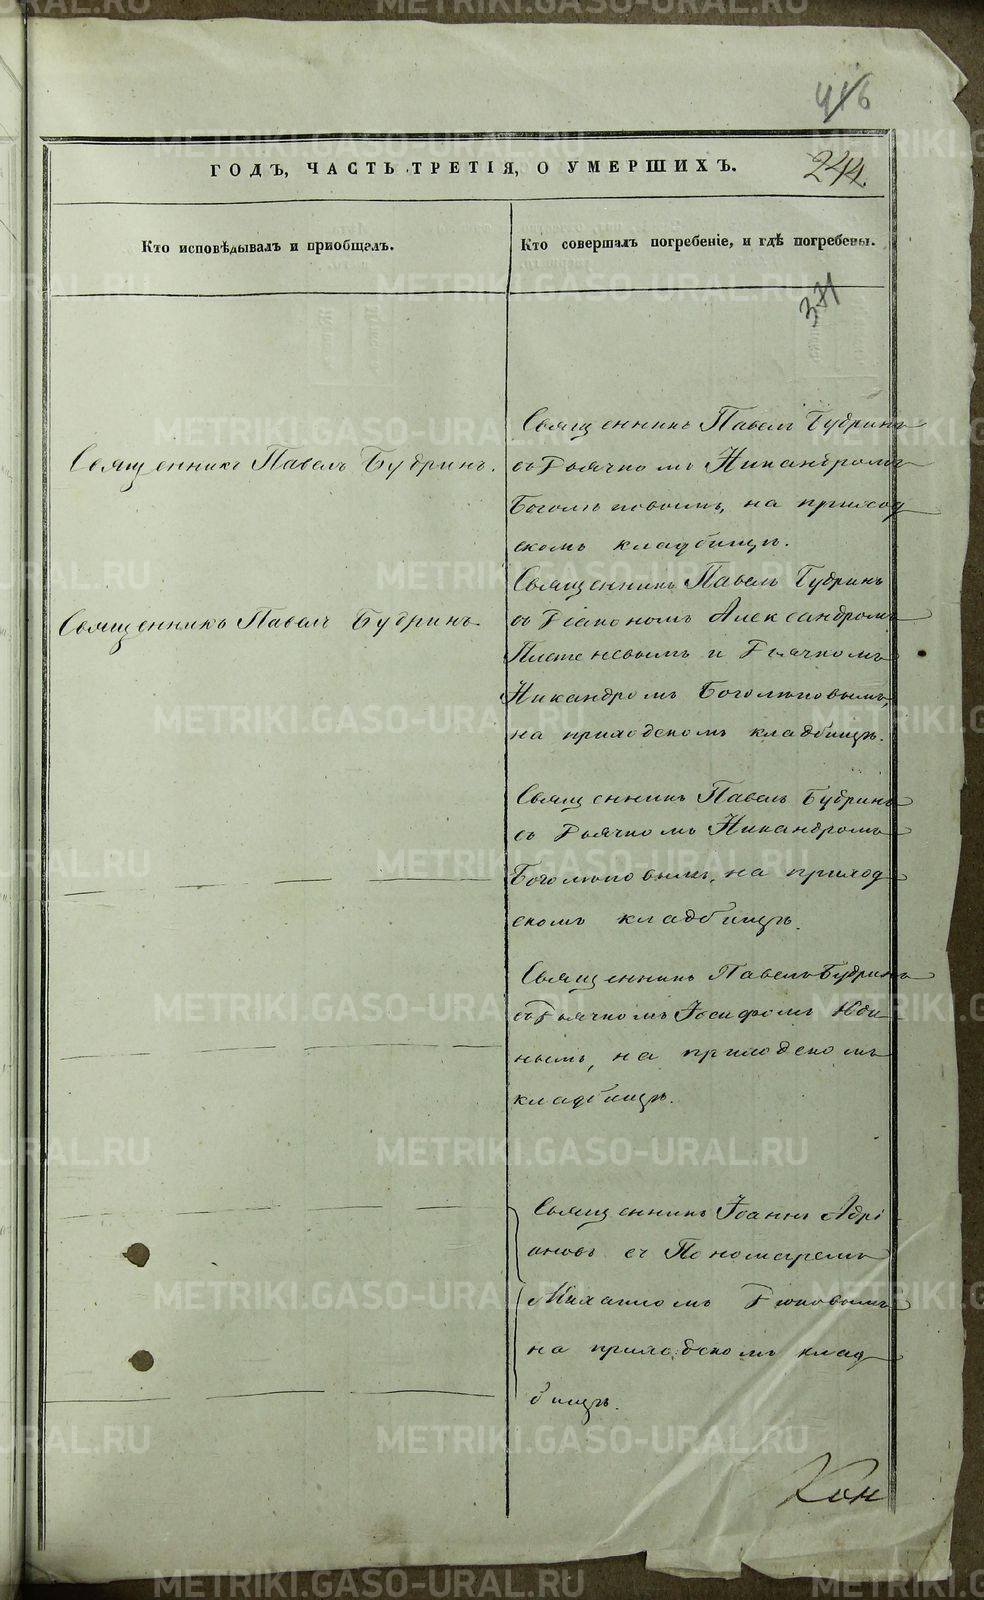 416
244.
ГОДЪ, ЧАСТЬ ТРЕТІЯ, О УМЕРШИХЪ.
Кто исповѣдывалъ и приобщалъ.
Кто совершалъ погребеніе, и гдѣ погребены.
371
Священникъ Павелъ Будринъ.
Священникъ Павелъ Будринъ
съ Дьячкомъ Никандромъ
Боголѣповымъ, на приход
скомъ кладбищѣ.
Священникъ Павелъ Будринъ
Священникъ Павелъ Будринъ
съ Діакономъ Александромъ
Плетеневымъ и Дьячкомъ
Никандромъ Боголѣповымъ,
на приходскомъ кладбищѣ.
Священникъ Павелъ Будринъ
съ Дьячкомъ Никандромъ
Боголѣповымъ, на приход
скомъ кладбищѣ.
Священникъ Павелъ Будринъ
съ Дьячкомъ Іосифомъ Юди
нымъ, на приходскомъ
кладбищѣ.
Священникъ Іоаннъ Адрі
ановъ съ Пономаремъ
Михаиломъ
на приходскомъ клад
бищѣ.
Кон
METRIKI.GASO-URAL.RU